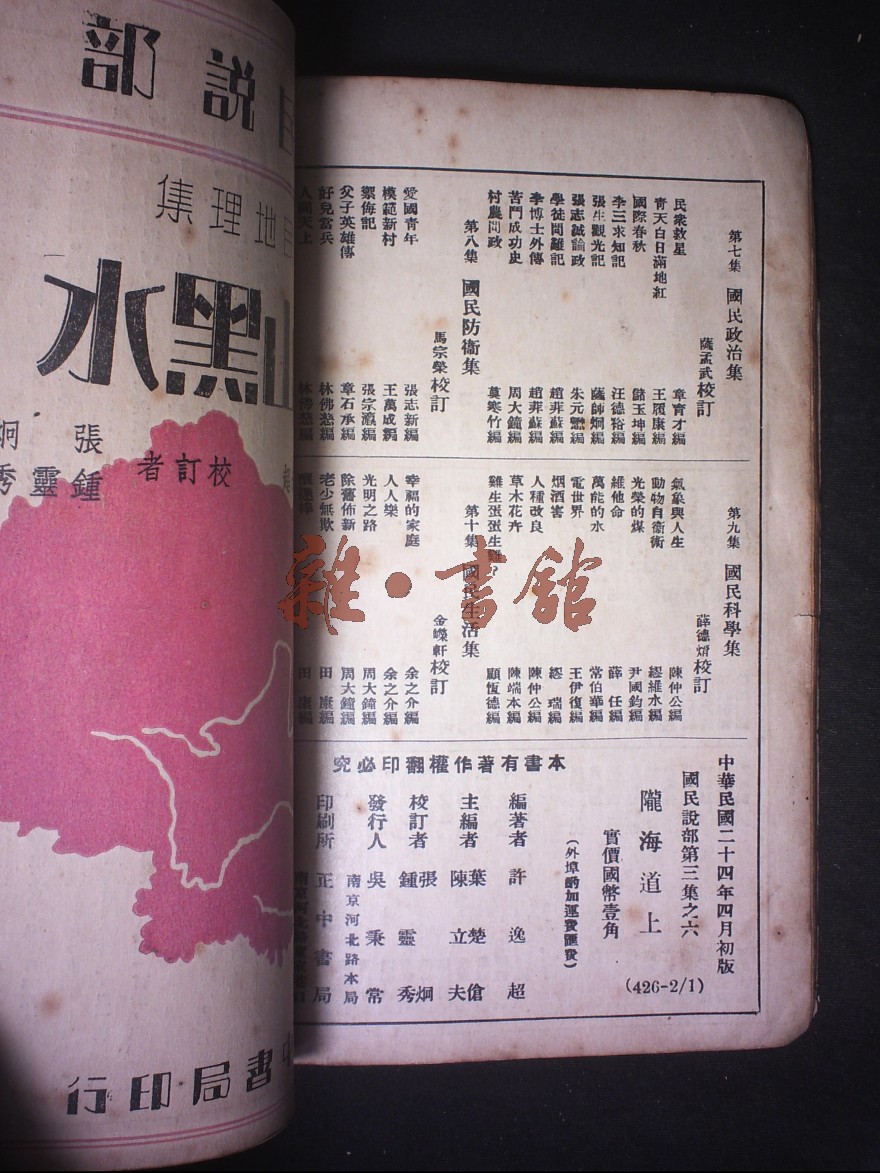 第七集 國民政治集
薩孟武校訂
民衆救星 章育才編
青天白日滿地紅 王履康編
國際春秋 儲玉坤編
李三求知記 汪德裕編
張生觀光記 薩師炯編
張志誠論政 朱元懋編
學徒問難記 趙菲蘇編
李博士外傳 趙菲蘇編
苦鬥成功史 周大鐘編
村農問政 莫寒竹編
第八集 國民防衞集
馬宗榮校訂
愛國青年 張志新編
模範新村 王萬成編
禦侮記 張宗瀛編
父子英雄傳 章石承編
好兒當兵 林佛慈編
人間天上 林佛慈編
第九集 國民科學集
薛德焴校訂
氣象與人生 陳仲公編
動物自衞術 繆維水編
光榮的煤 尹國鈞編
維他命 薛任編
萬能的水 常伯華編
電世界 王伊復編
烟酒害 繆瑞編
人種改良 陳仲公編
草木花卉 陳端本編
雞生蛋蛋生雞? 顧恆德編
第十集 國民生活集
金嶸軒校訂
幸福的家庭 余之介編
人人樂 余之介編
光明之路 周大鐘編
除舊佈新 周大鐘編
老少無欺 田康編
田康編
中華民國二十四年四月初版
國民說部第三集之六
(426-2/1)
隴海道上
實價國幣壹角
(外埠酌加運費匯費)
本書有著作權翻印必究
編著者 許逸超
主編者 葉楚傖 陳立夫
校訂者 張炯 鍾靈秀
發行人 吳秉常
南京河北路本局
印刷所 正中書局
說部
地理集
黑水
校訂者
張炯
鍾靈秀
書局印行
雜·書舘